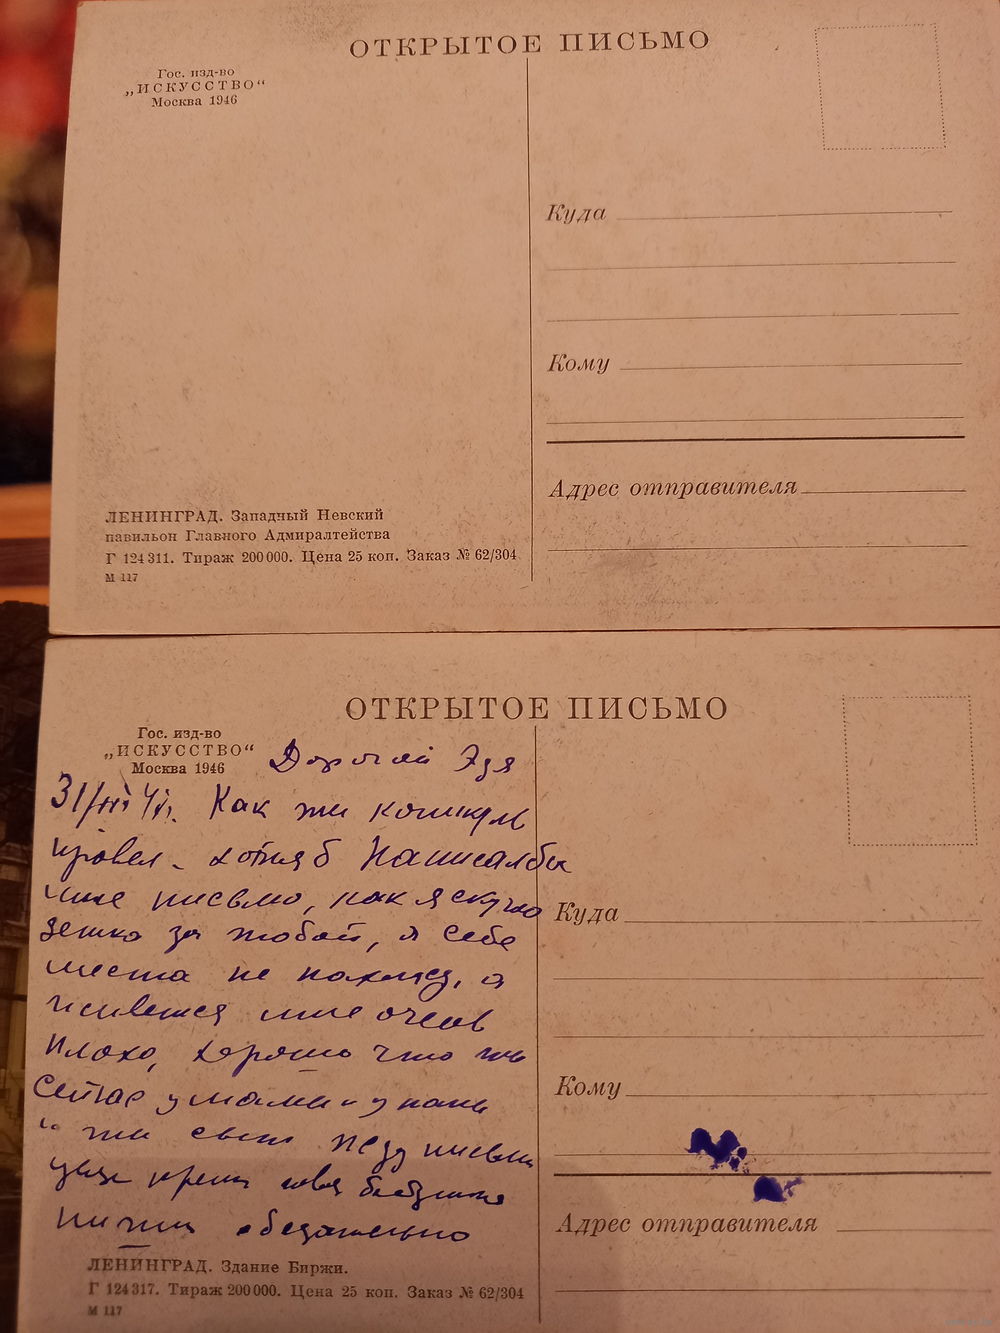 ОТКРЫТОЕ ПИСЬМО
Гос. изд-во
„ИСКУССТВО“
Москва 1946
Куда
Кому
Адрес отправителя
ЛЕНИНГРАД. Западный Невский
павильон Главного Адмиралтейства
Г 124311. Тираж 200000. Цена 25 коп. Заказ № 62/304
М 117
ОТКРЫТОЕ ПИСЬМО
Гос. изд-во
„ИСКУССТВО“
Москва 1946
Дорогой Эдя
Как ты каникулы
провел. хотя б написал бы
мне письмо, как я скучаю
за тобой, я себе
места не нахожу, а
живется мне очень
плохо, хорошо что ты
сейчас у мамы и у папы
и ты сыт жду письма
целую крепко твоя бабушка
пиши обязательно
Куда
Кому
Адрес отправителя
ЛЕНИНГРАД. Здание Биржи.
Г 124317. Тираж 200000. Цена 25 коп. Заказ № 62/304
М 117